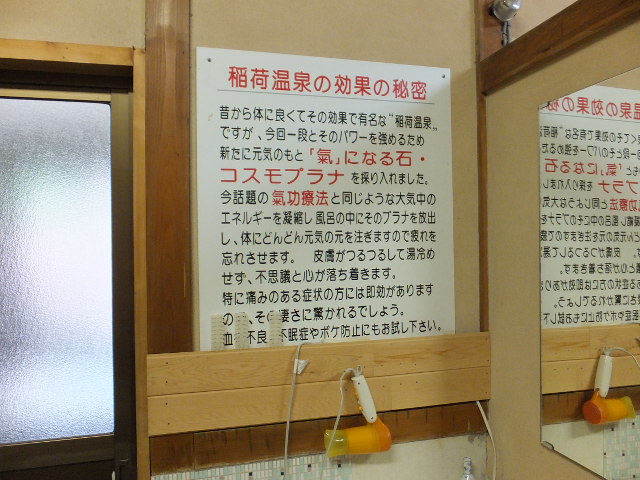 稲荷温泉の効果の秘密
昔から体に良くてその効果で有名な〝稲荷温泉〟
ですが、今回一段とそのパワーを強めるため
新たに元気のもと「氣」になる石・
コスモプラナを採り入れました。
今話題の氣功療法と同じような大気中の
エネルギーを凝縮し風呂の中にそのプラナを放出
し、体にどんどん元気の元を注ぎますので疲れを
忘れさせます。 皮膚がつるつるして湯冷め
せず、不思議と心が落ち着きます。
特に痛みのある症状の方には即効があります
の、その凄さに驚かれるでしょう。
血 不良 不眠症やボケ防止にもお試し下さい。